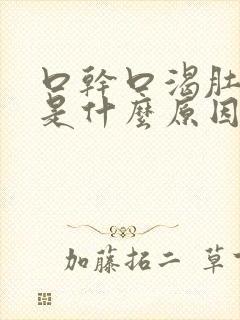 口幹口渴肚
是什麼原因
加藤拓二 草